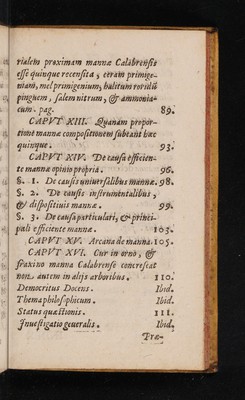 rialem proximam mannæ Calabrensis
esse quinque recensita, ceram primige-
niam, mel primigenium, halitum roridũ
pinguem, salem nitrum, & ammonia-
cum. pag. 89.
CAPVT XIII. Quanam propor-
tione mannæ compositionem subeant hæc
quinque. 93.
CAPVT XIV. De causa efficien-
te mannæ opinio propria. 96.
§. 1. De causis universalibus mannæ. 98.
§. 2. De causis instrumentalibus,
& dispositiuis mannæ. 99.
§. 3. De causa particulari, & princi-
pali efficiente mannæ. 103.
CAPVT XV. Arcana de manna. 105.
CAPVT XVI. Cur in orno, &
fraxino manna Calabrense concrescat
non autem in aliis arboribus. 110.
Democritus Docens. Ibid.
Thema philosophicum. Ibid.
Status quæstionis. 111.
Inuestigatio generalis. Ibid.
Præ-